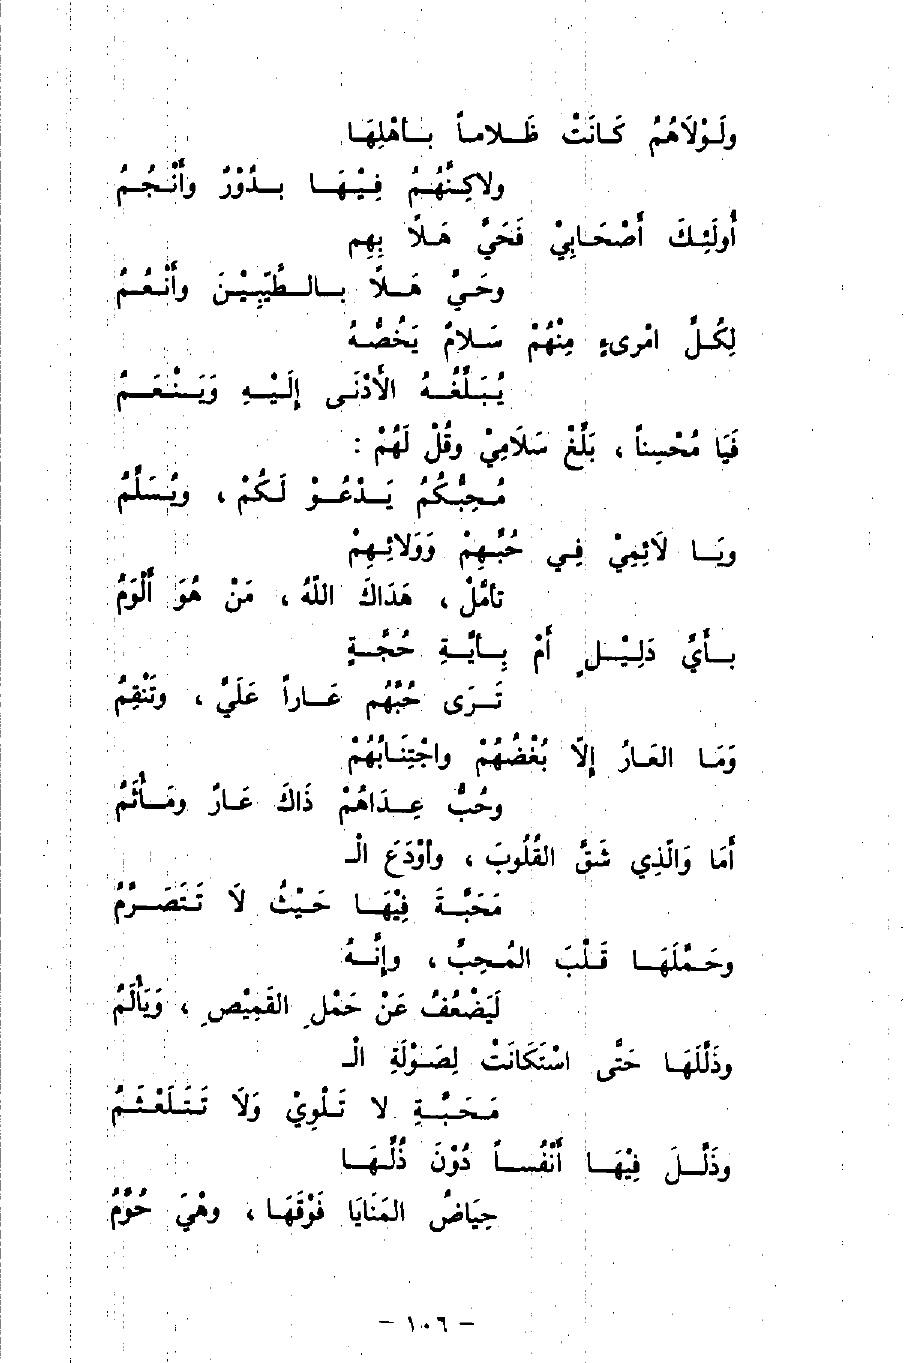 ولَـوْلَاهُمُ كَـانَتْ ظَـلاماً بـأهْلِهَـا
ولاكِـنَّهُـمُ فِـيْـهَـا بـدُوْرٌ وأنْـجُـمُ
أُولَئِـكَ أصْحَـابِيْ فَحَيَّ هَـلًا بِهِم
وحَـيَّ هَـلًا بـالـطَّيِّبِـيْـنَ وأنْـعُـمُ
لِكُـلِّ امْرىءٍ مِنْهُمْ سَـلامٌ يَخُصُّـهُ
يُـبَـلِّغُـهُ الأدْنَـى إلَـيْـهِ وَيَـنْـعَـمُ
فَيَا مُحْسِناً ، بَلِّغْ سَلَامِيْ وقُلْ لَهُمْ :
مُـحِبُّكُمُ يَـدْعُـوْ لَـكُمْ ، ويُـسَلِّمُ
ويَـا لَائِمِيْ فِـي حُبِّـهِمْ وَوَلَائِـهِمْ
تأمَّلْ ، هَدَاكَ اللّهُ ، مَنْ هُوَ ألْوَمُ
بـأيِّ دَلِـيْـلٍ أمْ بِـأيَّـةِ حُجَّـةٍ
تَـرَى حُبَّهُم عَـاراً عَلَيَّ ، وتَنْقِمُ
وَمَـا العَـارُ إلَّا بُغْضُهُمْ واجْتِنَـابُهُمْ
وحُبُّ عِـدَاهُمْ ذَاكَ عَـارٌ ومَـأْثَمُ
أمَا وَالَّذِي شَقَّ القُلُوبَ ، وأوْدَعَ الْـ
مَحَبَّـةَ فِيْهَـا حَـيْثُ لَا تَـتَصَـرَّمُ
وحَـمَّلَهَـا قَـلْبَ المُـحِبِّ ، وإنَّـهُ
لَيَضْعُفُ عَنْ حَمْلِ القَمِيْصِ ، وَيَألَمُ
وذَلَّلَهَـا حَتَّى اسْتَكَانَتْ لِصَـوْلَةِ الْـ
مَـحَـبَّـةِ لا تَـلْوِيْ وَلَا تَـتَـلَعْـثَـمُ
وذَلَّـلَ فِيْهَـا أنْفُسـاً دُوْنَ ذُلِّـهَـا
حِيَاضُ المَنَايَا فَوْقَهَـا ، وهْيَ حُوَّمُ
- ١٠٦ -